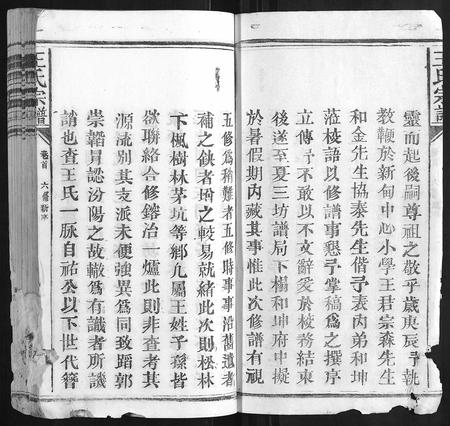 靈而起後嗣尊祖之敬乎歲庚辰予執
教鞭於新甸中心小學王君宗森先生
和金先生協泰先生偕予表丙弟和坤
蒞棱語以修譜事懇予掌稿為之撰序
立傳予不敢以不文辭爰於校務結束
後遂至夏三坊譜局下榻和坤府中擬
於暑假期內藏其事惟此次修譜有視
五修為稍難者五修時事事沿舊遺者
補之缺者增之較易就緒此次則松林
下楓樹林茅坑等鄉凡屬王姓子孫皆
欲聯絡合修鎔治一爐此則非查考其
源流別其支派未便強異為同致蹈郭
崇韜冒認汾陽之故轍為有識者所譏
誚也查王氏一脉自祐公以下世代簪
王氏宗譜
卷首
六修新序
王氏宗譜